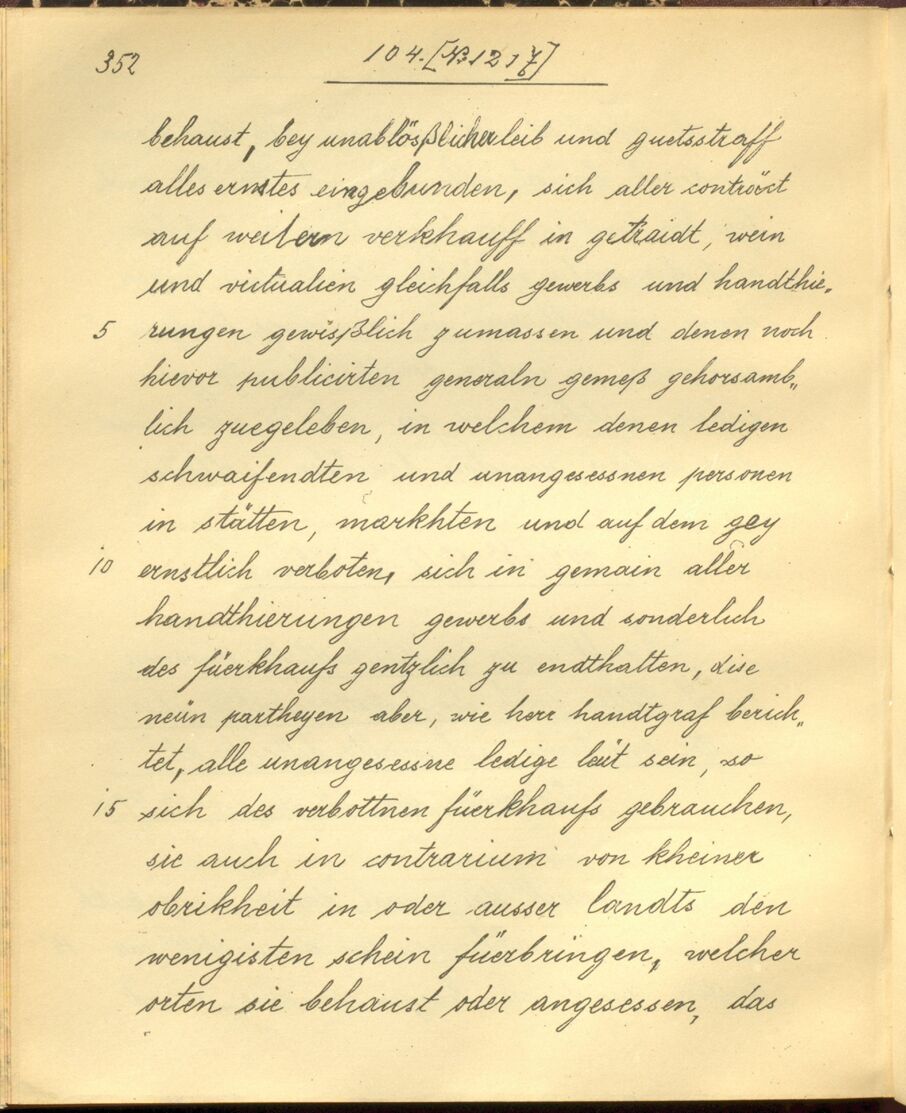 352
104. [N. 1217]
behaust, bey unablösßlicher leib und guetsstraff
alles ernstes eingebunden, sich aller conträct
auf weitern verkhauff in getraidt, wein
und victualien gleichfalls gewerbs und handthie„
5 rungen gewisßlich zumassen und denen noch
hievor publicirten generaln gemeß gehorsamb„
lich zuegeleben, in welchem denen ledigen
schwaifendten und unangesessnen personen
in stätten, märkhten und auf dem gey
10 ernstlich verboten, sich in gemain aller
handthierungen gewerbs und sonderlich
des füerkhaufs gentzlich zu endthalten, dise
neün partheyen aber, wie herr handtgraf berich„
tet, alle unangesessne ledige leüt sein, so
15 sich des verbottnen füerkhaufs gebrauchen,
sie auch in contrarium von kheiner
obrikheit in oder ausser landts den
wenigisten schein füerbringen, welcher
orten sie behaust oder angesessen, das